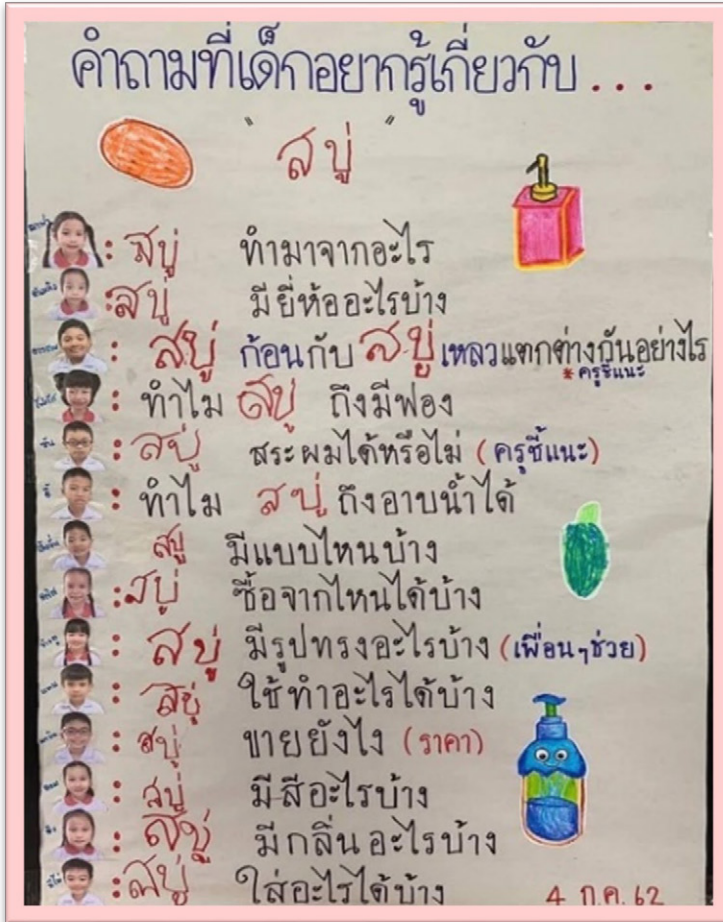 คำถามที่เด็กอยากรู้เกี่ยวกับ...
"สบู่"
: สบู่ ทำมาจากอะไร
: สบู่ มียี่ห้ออะไรบ้าง
: สบู่ ก้อนกับ สบู่ เหลวแตกต่างกันอย่างไร
* ครูชี้แนะ
: ทำไม สบู่ ถึงมีฟอง
: สบู่ สระผมได้หรือไม่ (ครูชี้แนะ)
: ทำไม สบู่ ถึงอาบน้ำได้
สบู่ มีแบบไหนบ้าง
: สบู่ ซื้อจากไหนได้บ้าง
: สบู่ มีรูปทรงอะไรบ้าง (เพื่อนๆช่วย)
: สบู่ ใช้ทำอะไรได้บ้าง
: สบู่ ขายยังไง (ราคา)
: สบู่ มีสีอะไรบ้าง
: สบู่ มีกลิ่นอะไรบ้าง
: สบู่ ใส่อะไรได้บ้าง
4 ก.ค. 62